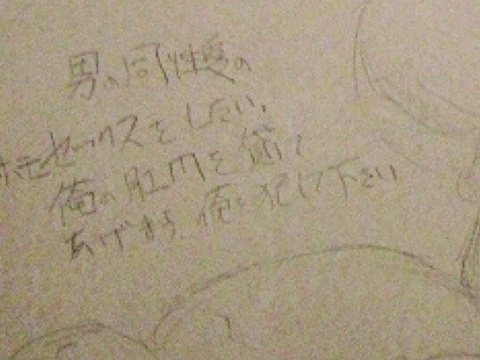 男の同性愛の
ホモセックスをしたい。
俺の肛門を貸して
あげるから、俺を犯して下さい